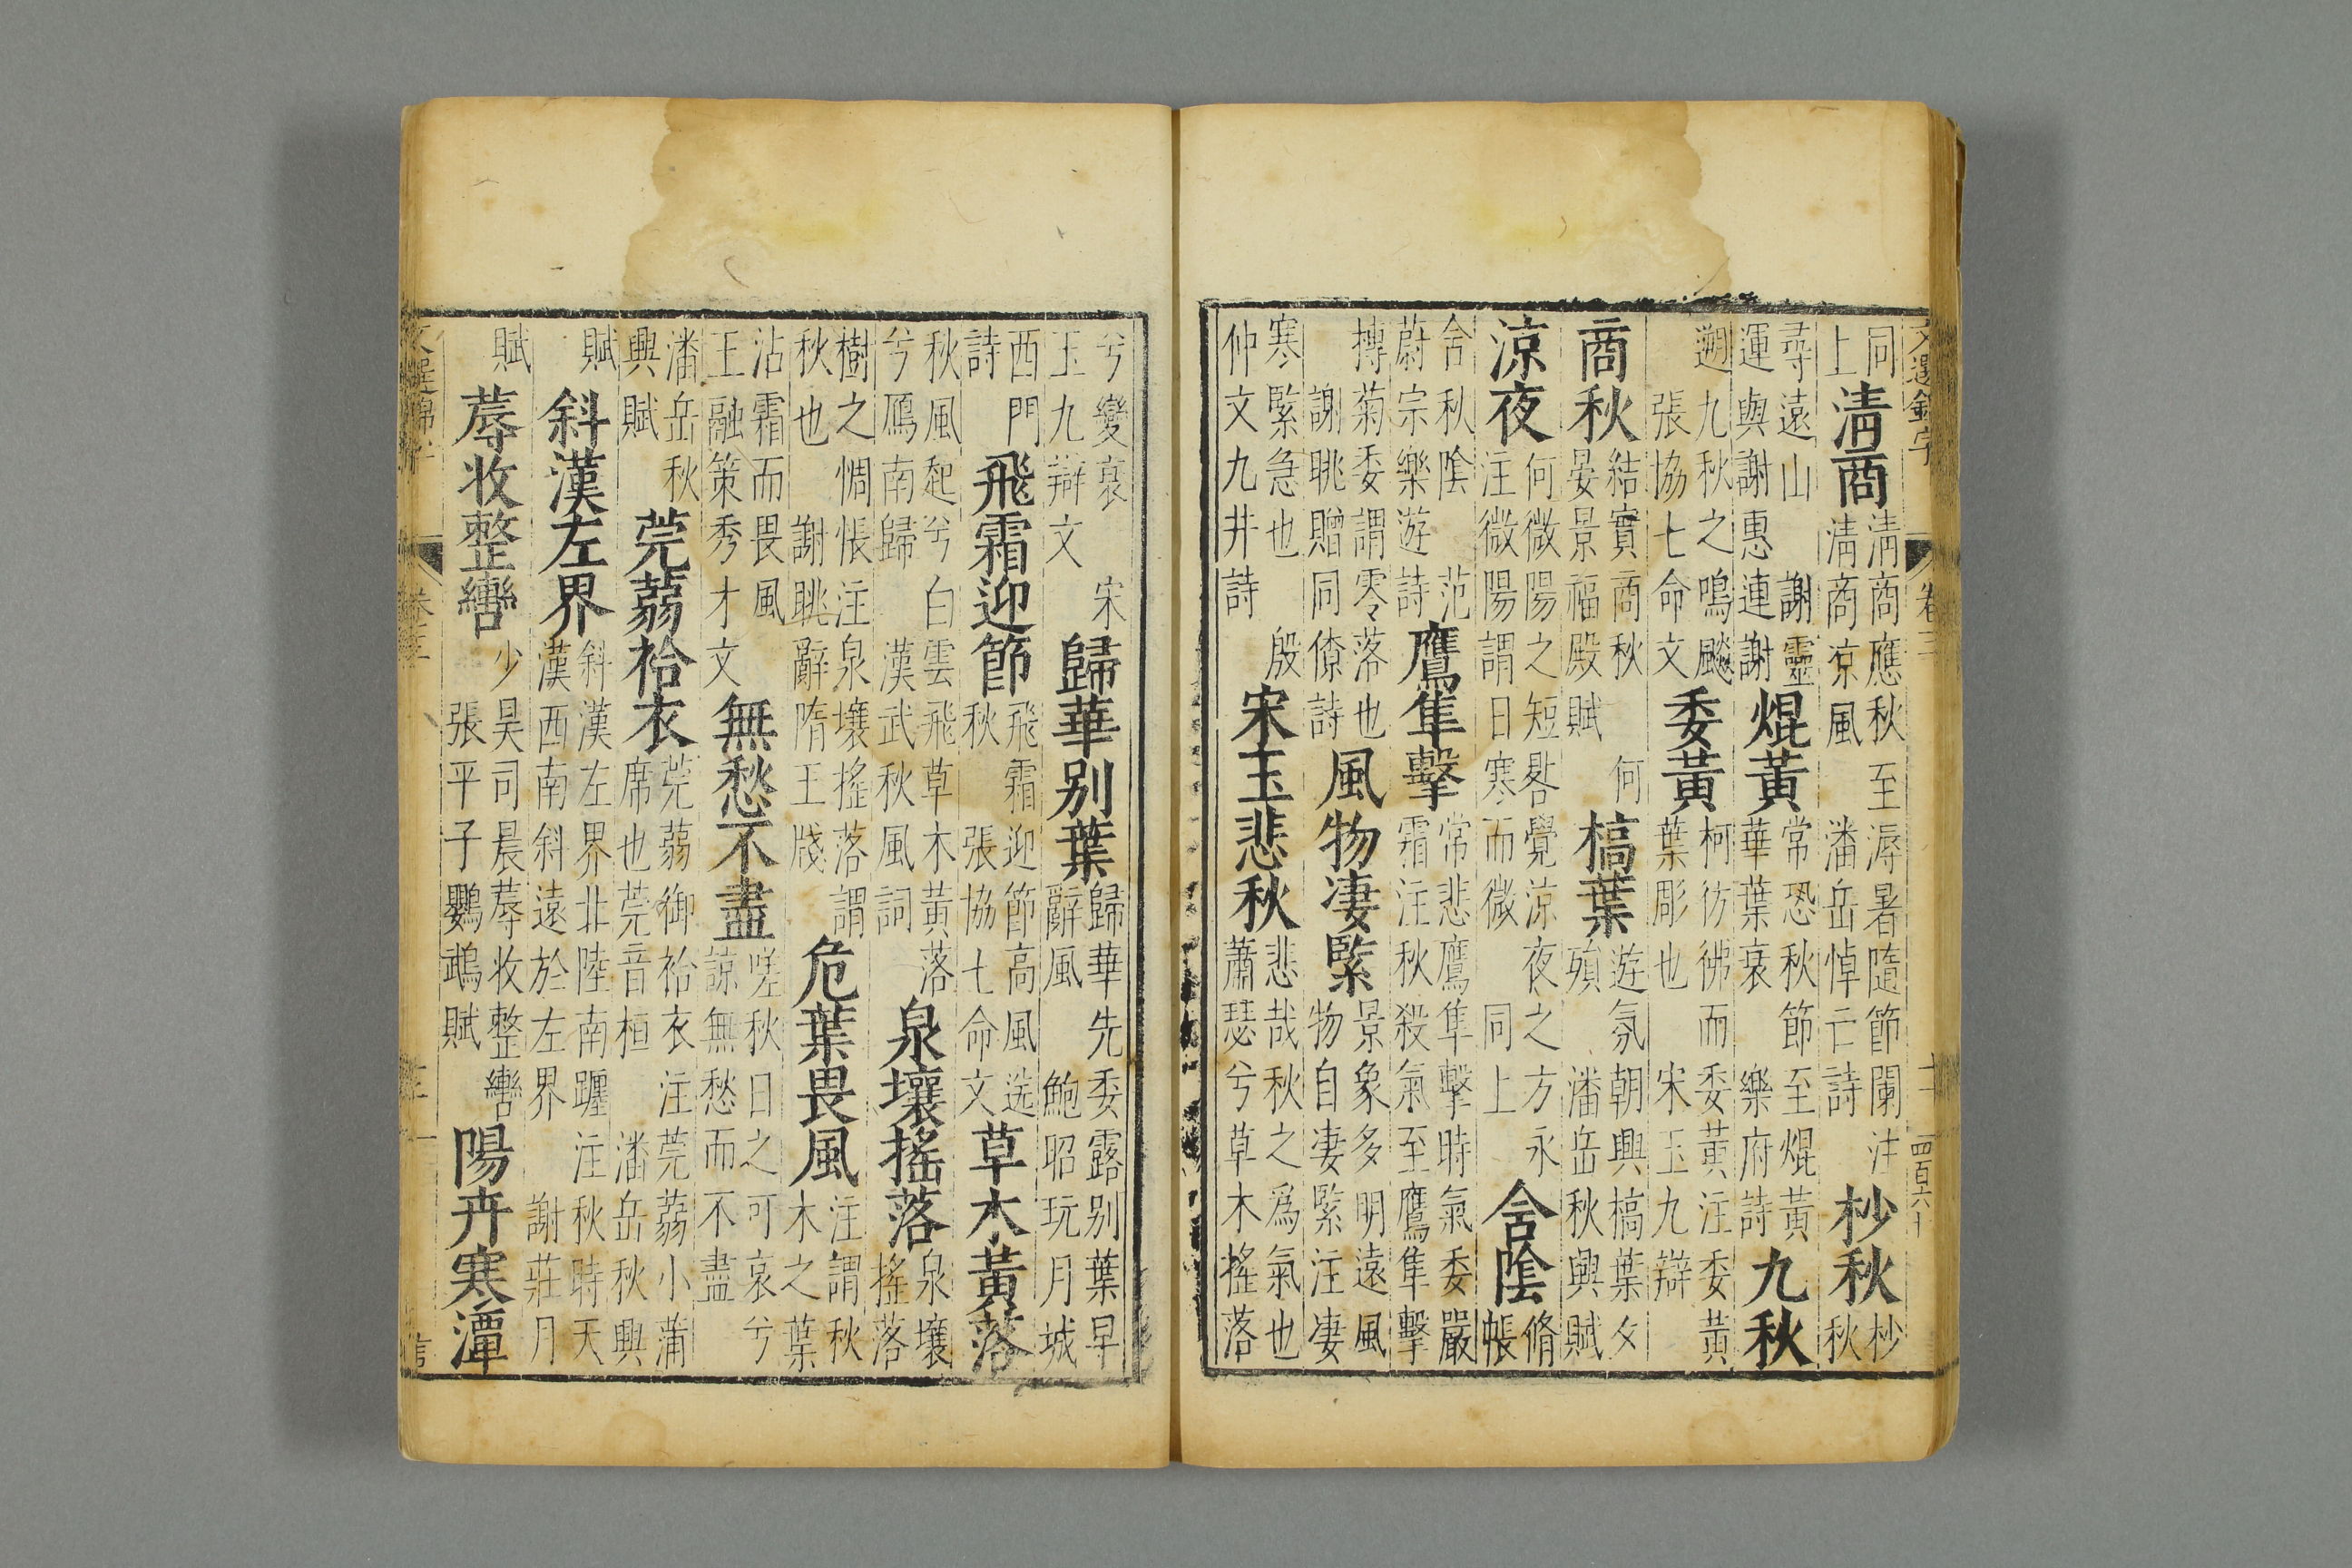 文選錦字 卷三 四百六十
同上 清商 清商應秋至溽暑隨節闌注清商凉風 潘岳悼亡詩 杪秋 杪秋
尋遠山 謝靈運與謝惠連謝 焜黃 常恐秋節至焜黃華葉衰 樂府詩 九秋
遡九秋之鳴飇 張協七命文 委黃 柯彷彿而委黃注委黃葉彫也 宋玉九辯
商秋 結實商秋 何晏景福殿賦 槁葉 遊氛朝興槁葉夕殞 潘岳秋興賦
涼夜 何微陽之短晷覺涼夜之方永注微陽謂日寒而微 同上 含陰 脩帳
含秋陰 范蔚宗樂遊詩 鷹隼擊 常悲鷹隼擊時氣委嚴霜注秋殺氣至鷹隼擊
摶菊委謂零落也 謝眺贈同僚詩 風物凄緊 景象多明遠風物自凄緊注凄
寒緊急也 殷仲文九井詩 宋玉悲秋 悲哉秋之爲氣也蕭瑟兮草木搖落
兮變衰 宋玉九辯文 歸華别葉 歸華先委露别葉早辭風 鮑昭玩月城
西門詩 飛霜迎節 飛霜迎節高風送秋 張協七命文 草木黃落
秋風起兮白雲飛草木黃落兮鴈南歸 漢武秋風詞 泉壤搖落 泉壤搖落
樹之惆悵注泉壤搖落謂秋也 謝眺辭隋王牋 危葉畏風 注謂秋木之葉
沾霜而畏風 王融策秀才文 無愁不盡 嗟秋日之可哀兮諒無愁而不盡
潘岳秋興賦 莞蒻袷衣 莞蒻御袷衣注莞蒻小蒲席也莞音桓 潘岳秋興
賦 斜漢左界 斜漢左界北陸南躔注秋時天漢西南斜遠於左界 謝莊月
賦 蓐收整轡 少昊司晨蓐收整轡 張平子鸚鵡賦 陽卉寒潭